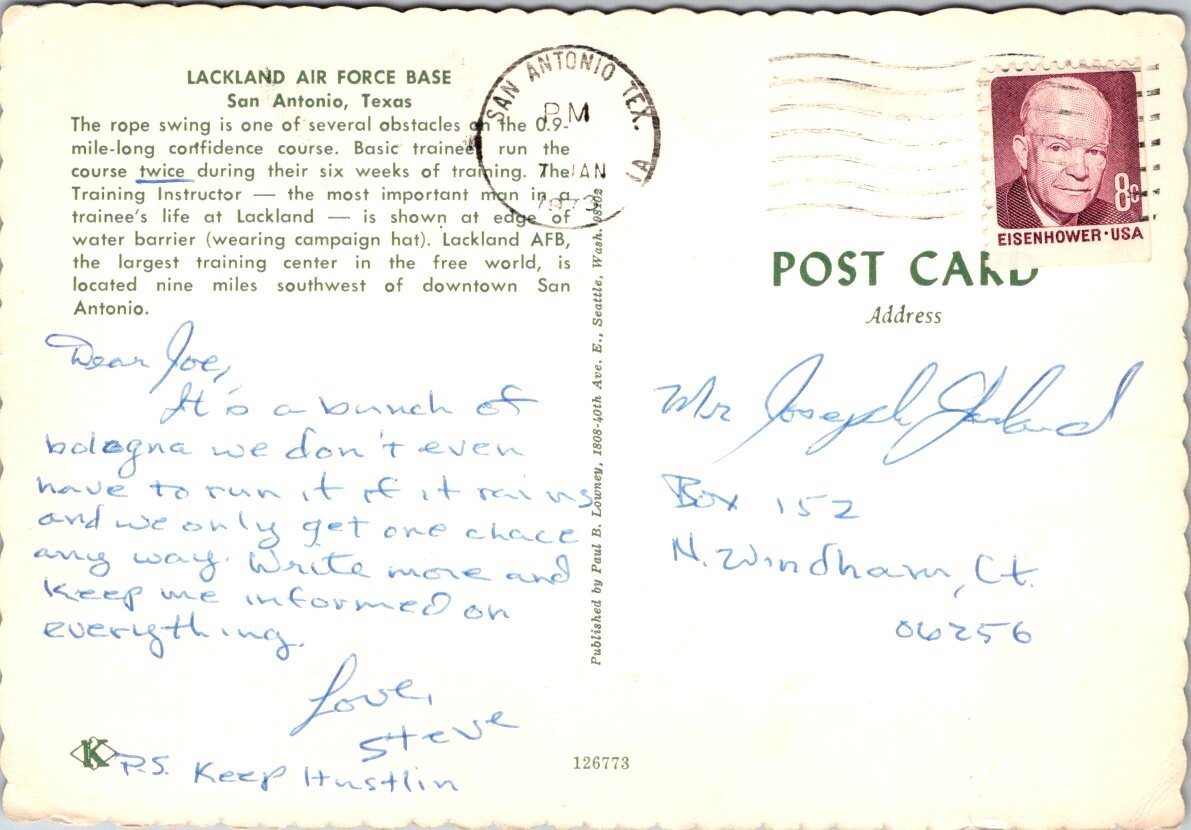 LACKLAND AIR FORCE BASE
San Antonio, Texas
The rope swing is one of several obstacles on the 0.9-
mile-long confidence course. Basic trainees run the
course twice during their six weeks of training. The
Training Instructor — the most important man in a
trainee's life at Lackland — is shown at edge of
water barrier (wearing campaign hat). Lackland AFB,
the largest training center in the free world, is
located nine miles southwest of downtown San
Antonio.
Dear Joe,
It's a bunch of
bologna we don't even
have to run it if it rains
and we only get one chace
any way. Write more and
Keep me informed on
everything.
Love,
Steve
P.S. Keep Hustlin
K
126773
Published by Paul B. Lowney, 1808-40th Ave. E., Seattle, Wash. 98102
SAN ANTONIO TEX.
PM
7 JAN
1973
8c
EISENHOWER·USA
POST CARD
Address
Mr Joseph
Box 152
N. Windham, Ct.
06256